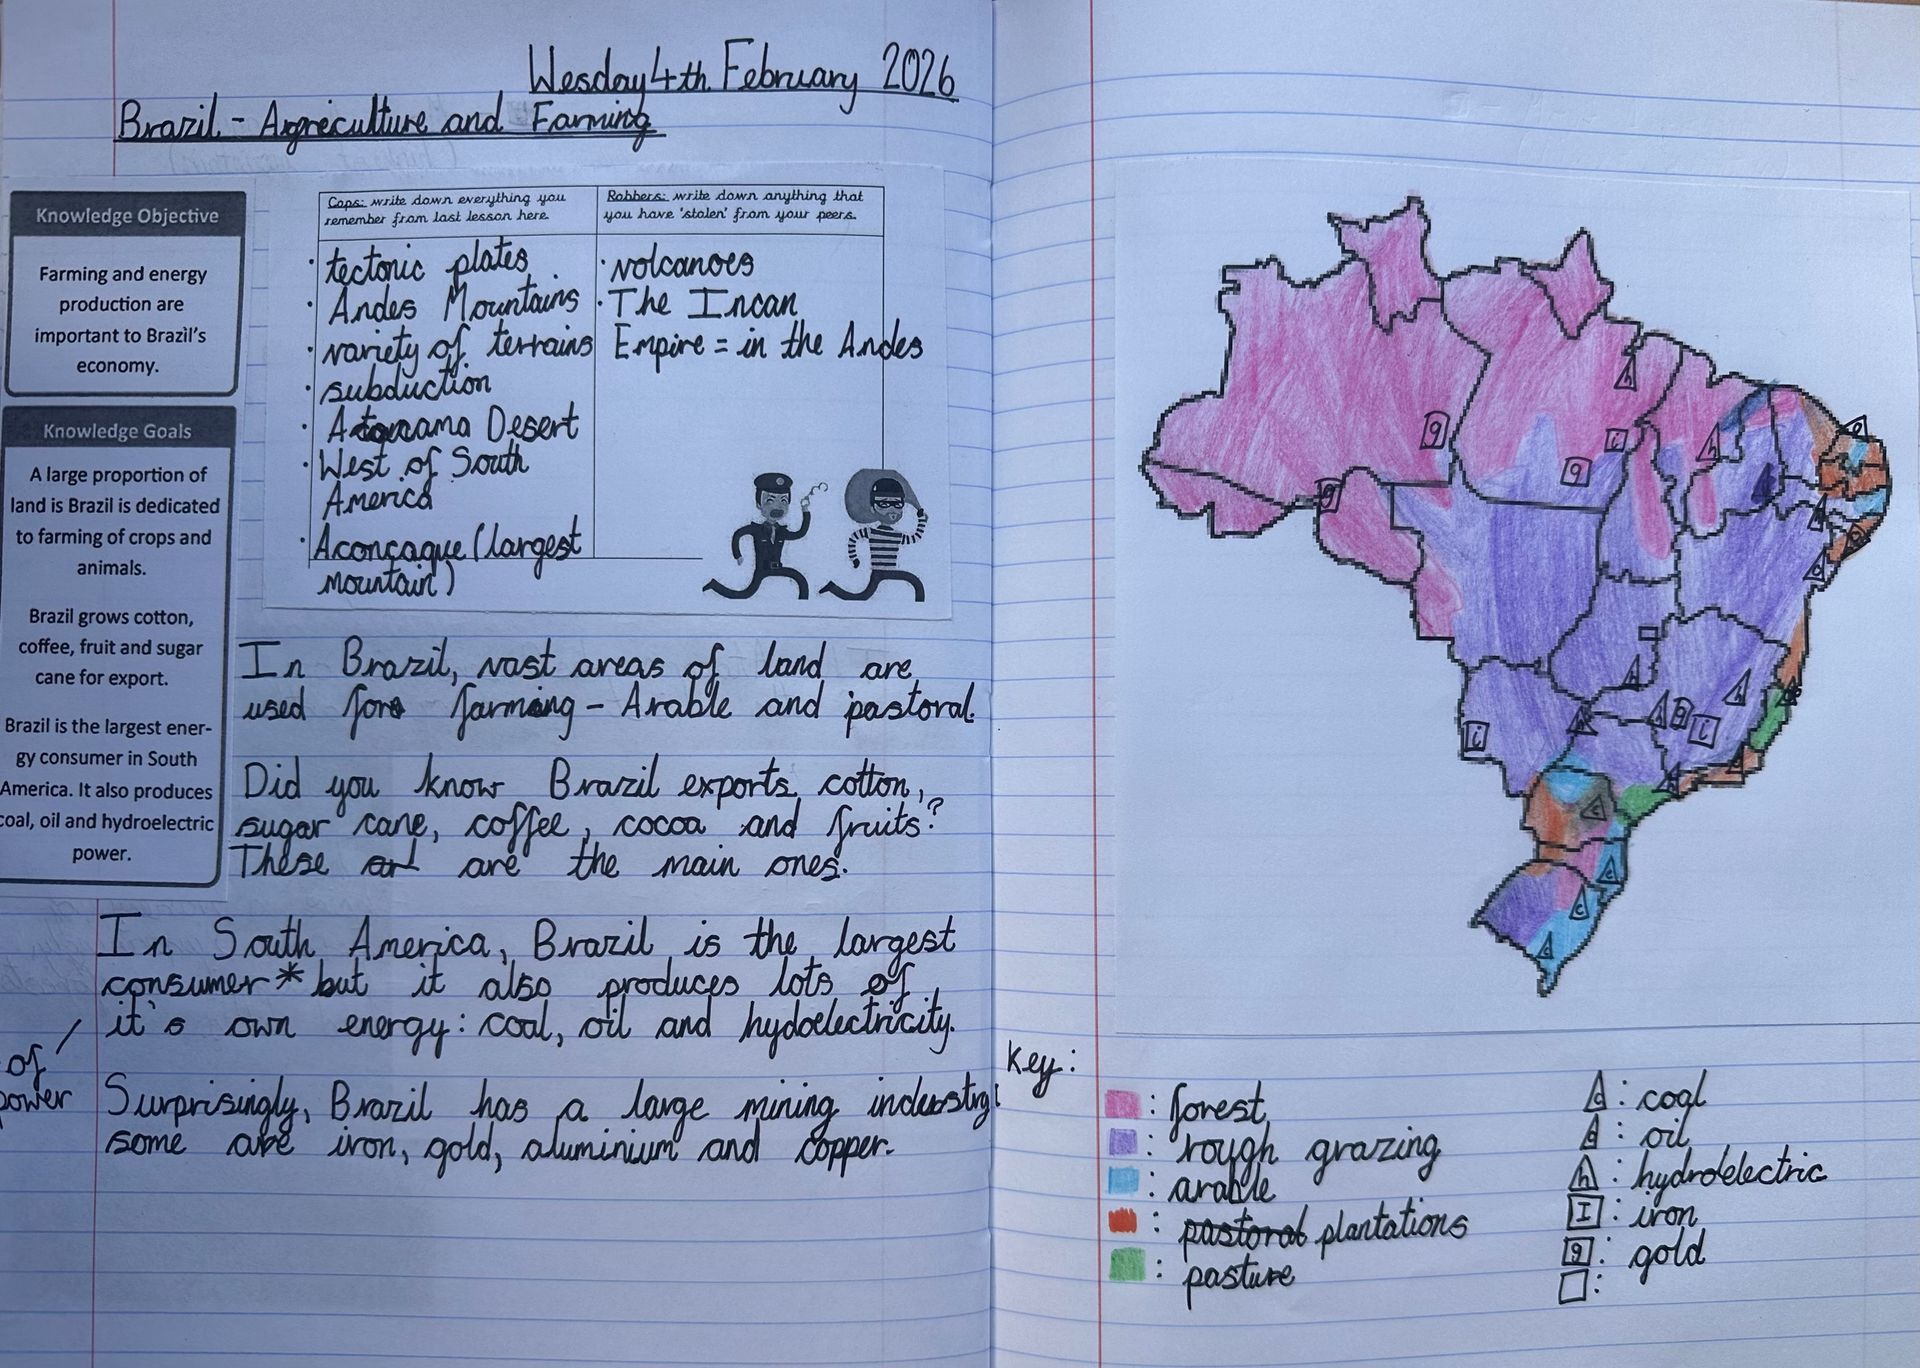 Wesday 4th February 2026
Brazil - Agreculture and Farming
Knowledge Objective
Farming and energy
production are
important to Brazil's
economy.
Knowledge Goals
A large proportion of
land is Brazil is dedicated
to farming of crops and
animals.
Brazil grows cotton,
coffee, fruit and sugar
cane for export.
Brazil is the largest ener-
gy consumer in South
America. It also produces
coal, oil and hydroelectric
power.
Cops: write down everything you
remember from last lesson here.
· tectonic plates
· Andes Mountains
· variety of terrains
· subduction
· Atacama Desert
· West of South
America
· Aconcaque (largest
mountain)
Robbers: write down anything that
you have 'stolen' from your peers.
· volcanoes
· The Incan
Empire = in the Andes
In Brazil, vast areas of land are
used for farming - Arable and pastoral.
Did you know Brazil exports cotton,
sugar cane, coffee, cocoa and fruits?
These are the main ones.
In South America, Brazil is the largest
consumer* but it also produces lots of
it's own energy: coal, oil and hydoelectricity.
of
power
Surprisingly, Brazil has a large mining industry!
some are iron, gold, aluminium and copper.
h
g
i
h
g
g
h
h
h
i
g
i
c
c
c
Key:
: forest
: rough grazing
: arable
: pastoral plantations
: pasture
c : coal
: oil
h : hydroelectric
I : iron
g : gold
: